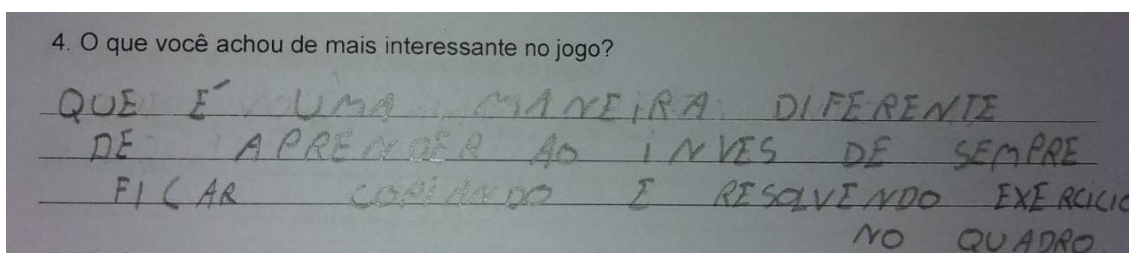 4. O que você achou de mais interessante no jogo?
QUE É UMA MANEIRA DIFERENTE
DE APRENDER AO INVES DE SEMPRE
FICAR COPIANDO E RESOLVENDO EXERCICIO
NO QUADRO.